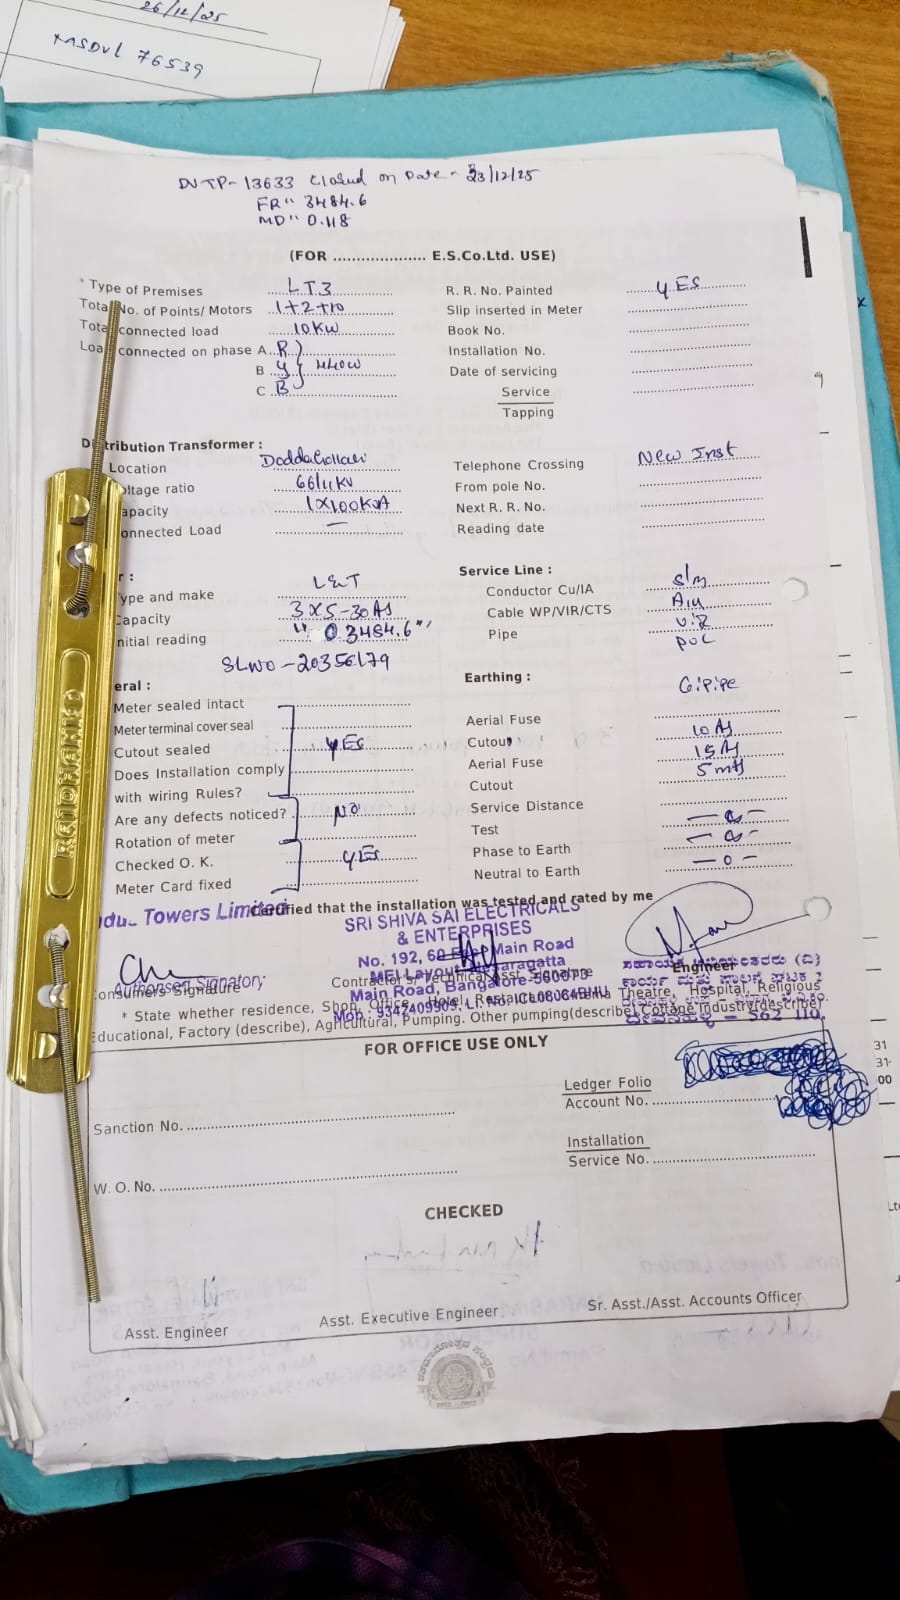 26/12/25
MSDVL 76539
DVTP-13633 closed on Date - 23/12/25
FR" 3484.6
MD" 0.118
(FOR .................... E.S.Co.Ltd. USE)
* Type of Premises LT3 R. R. No. Painted YES
Total No. of Points/ Motors 1+2+10 Slip inserted in Meter
Total connected load 10KW Book No.
Load connected on phase A R Installation No.
B Y Date of servicing
C B Service
Tapping
Distribution Transformer :
Location Telephone Crossing New Inst
Voltage ratio From pole No.
Capacity 1X100KVA Next R. R. No.
Connected Load — Reading date
Service Line :
Type and make L&T Conductor Cu/IA
Capacity 3X5-30AS Cable WP/VIR/CTS
Initial reading "03484.6" Pipe PVC
SLNO-20356179
General : Earthing : G.I.Pipe
Meter sealed intact
Meter terminal cover seal Aerial Fuse
Cutout sealed YES Cutout 10 As
Does Installation comply Aerial Fuse 15 As
with wiring Rules? Cutout 5 mts
Are any defects noticed? NO Service Distance
Rotation of meter Test
Checked O. K. YES Phase to Earth
Meter Card fixed Neutral to Earth — 0 —
Certified that the installation was tested and rated by me
Indus Towers Limited
SRI SHIVA SAI ELECTRICALS
& ENTERPRISES
No. 192, Main Road
MEI Layout,
Main Road, Bangalore-560073
Mob : 9342409909,
Authorised Signatory
Consumers Signature Contractor's/Technical Asst. Signature Engineer
ದೇವನಹಳ್ಳಿ – 562 110.
* State whether residence, Shop, Office, Hotel, Restaurant, Cinema Theatre, Hospital, Religious
Educational, Factory (describe), Agricultural, Pumping. Other pumping(describe) Cottage Industry(describer
FOR OFFICE USE ONLY
Ledger Folio
Account No.
Sanction No.
Installation
Service No.
W. O. No.
CHECKED
Asst. Engineer Asst. Executive Engineer Sr. Asst./Asst. Accounts Officer
RAJDHANI